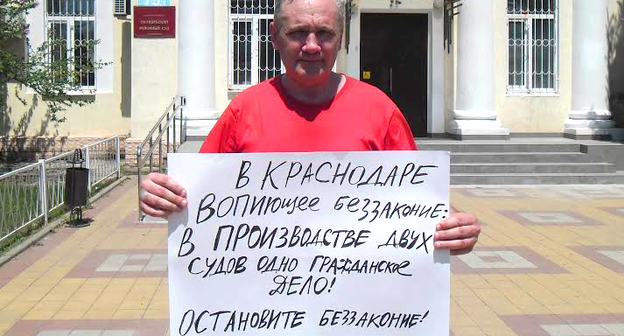 В КРАСНОДАРЕ
ВОПИЮЩЕЕ БЕЗЗАКОНИЕ:
В ПРОИЗВОДСТВЕ ДВУХ
СУДОВ ОДНО ГРАЖДАНСКОЕ
ДЕЛО!
ОСТАНОВИТЕ БЕЗЗАКОНИЕ!